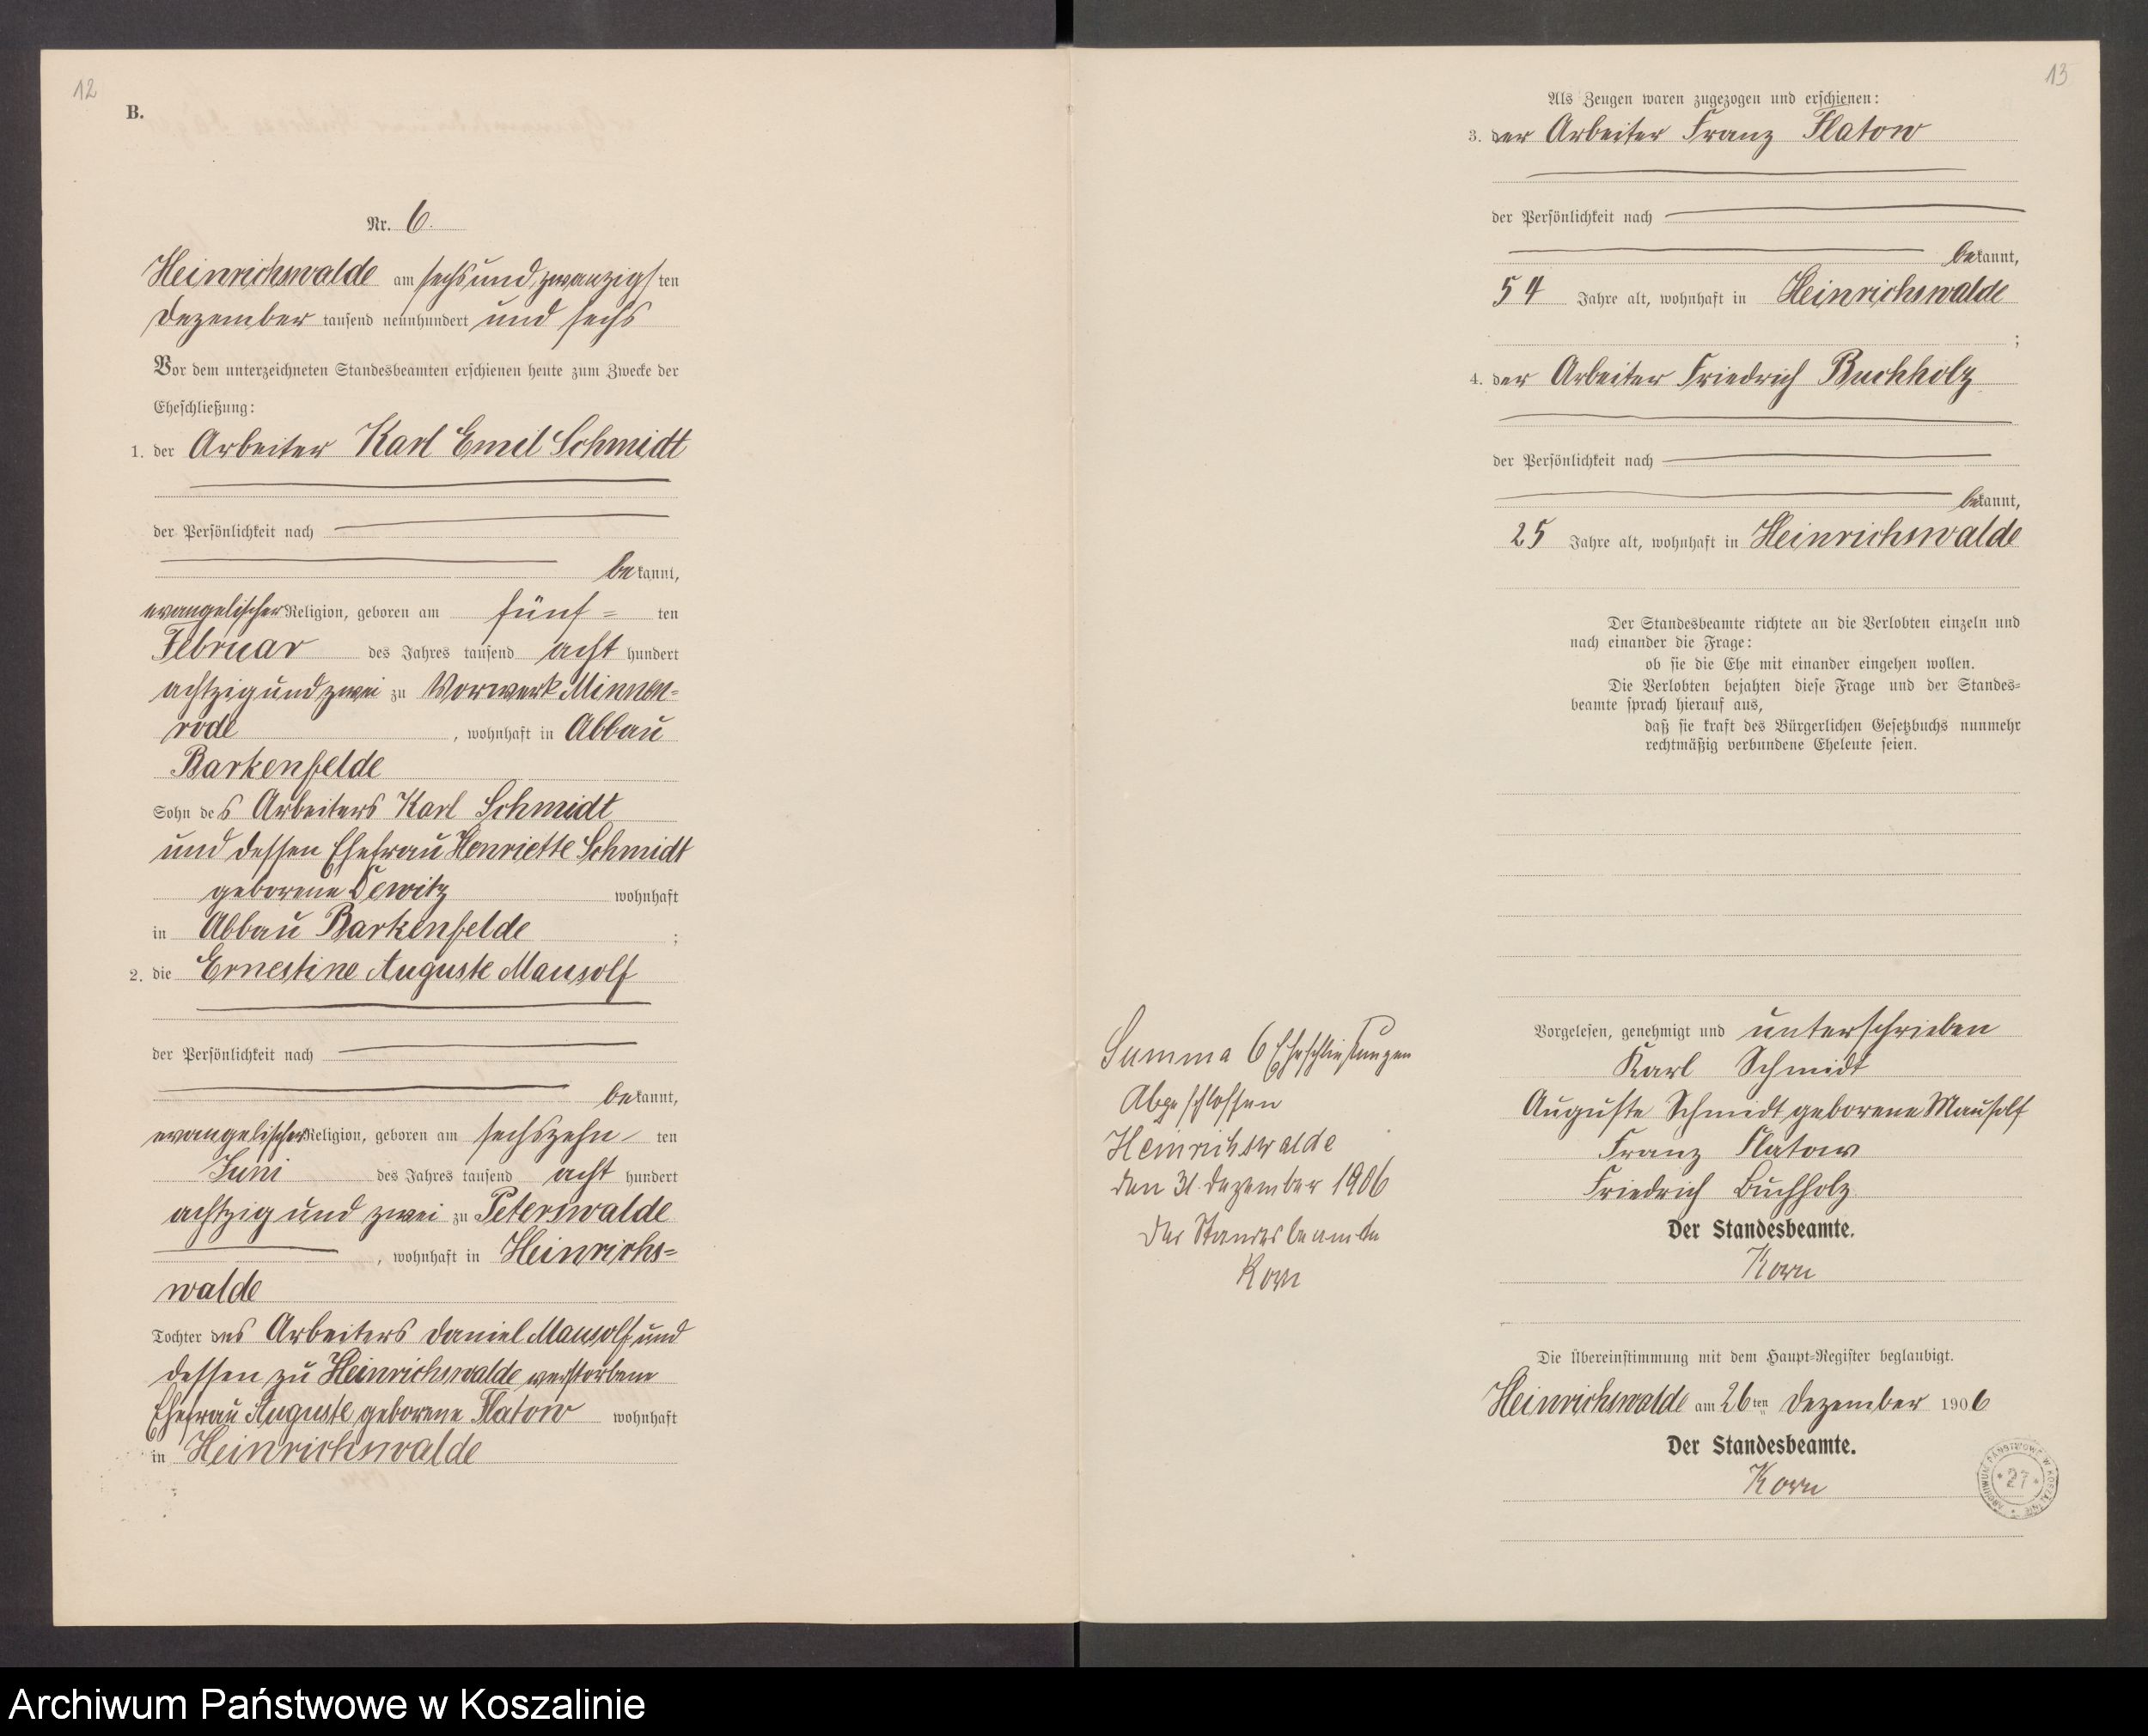 12
B.
Nr. 6.
Heinrichswalde am sechsundzwanzigsten
Dezember tausend neunhundert und sechs
Vor dem unterzeichneten Standesbeamten erschienen heute zum Zwecke der
Eheschließung:
1. der Arbeiter Karl Emil Schmidt
der Persönlichkeit nach
bekannt,
evangelischer Religion, geboren am fünf=ten
Februar des Jahres tausend acht hundert
achtzig und zwei zu Vorwerk Minnen=
rode, wohnhaft in Abbau
Barkenfelde
Sohn des Arbeiters Karl Schmidt
und dessen Ehefrau Henriette Schmidt
geborene Dewitz wohnhaft
in Abbau Barkenfelde;
2. die Ernestine Auguste Mausolf
der Persönlichkeit nach
bekannt,
evangelischer Religion, geboren am sechszehn ten
Juni des Jahres tausend acht hundert
achtzig und zwei zu Peterswalde
, wohnhaft in Heinrichs=
walde
Tochter des Arbeiters Daniel Mausolf und
dessen zu Heinrichswalde verstorbene
Ehefrau Auguste geborene Flatow wohnhaft
in Heinrichswalde
13
Als Zeugen waren zugezogen und erschienen:
3. der Arbeiter Franz Flatow
der Persönlichkeit nach
bekannt,
54 Jahre alt, wohnhaft in Heinrichswalde
;
4. der Arbeiter Friedrich Buchholz
der Persönlichkeit nach
bekannt,
25 Jahre alt, wohnhaft in Heinrichswalde
Der Standesbeamte richtete an die Verlobten einzeln und
nach einander die Frage:
ob sie die Ehe mit einander eingehen wollen.
Die Verlobten bejahten diese Frage und der Standes=
beamte sprach hierauf aus,
daß sie kraft des Bürgerlichen Gesetzbuchs nunmehr
rechtmäßig verbundene Eheleute seien.
Vorgelesen, genehmigt und unterschrieben
Karl Schmidt
Auguste Schmidt geborene Mausolf
Franz Flatow
Friedrich Buchholz
Der Standesbeamte.
Korn
Summa 6 Eheschließungen
Abgeschlossen
Heinrichswalde
den 31. Dezember 1906
Der Standesbeamte
Korn
Die Übereinstimmung mit dem Haupt=Register beglaubigt.
Heinrichswalde am 26ten Dezember 1906
Der Standesbeamte.
Korn
ARCHIWUM PAŃSTWOWE W KOSZALINIE
* 27 *
Archiwum Państwowe w Koszalinie